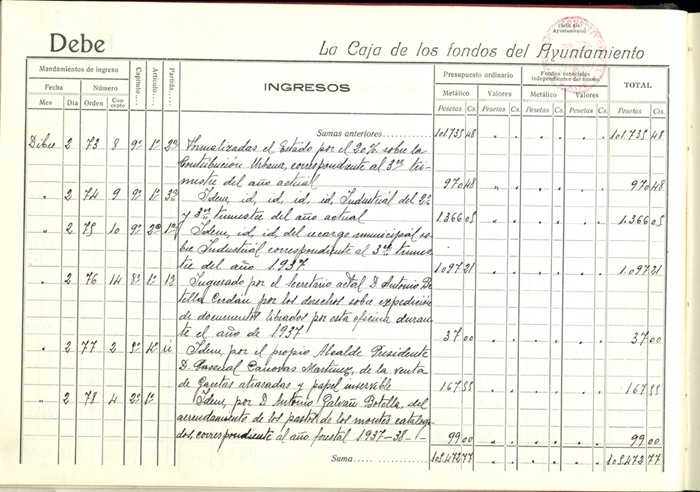 Debe
La Caja de los fondos del Ayuntamiento
(Sello del Ayuntamiento)
Mandamientos de ingreso
Fecha Número
Mes Día Orden Concepto
Capítulo Artículo Partida
INGRESOS
Presupuesto ordinario
Metálico Valores
Pesetas Cs. Pesetas Cs.
Fondos especiales independientes del mismo
Metálico Valores
Pesetas Cs. Pesetas Cs.
TOTAL
Pesetas Cts.
Sumas anteriores 101.735 48 101.735 48
Dibre 2 73 8 9º 1º 2ª Formalizadas el Estado por el 20% sobre la
Contribución Urbana, correspondiente al 3er tri-
mestre del año actual 970 48 970 48
" 2 74 9 9º 1º 3ª Idem, id, id, id, id, Industrial del 2º
y 3er trimestre del año actual 1.366 05 1.366 05
" 2 75 10 9º 2º 1ª Idem, id, id, del recargo municipal so-
bre Industrial correspondiente al 3er trimes-
tre del año 1.937 1.097 21 1.097 21
" 2 76 14 8º 1º 1ª Ingresado por el Secretario actal D. Antonio Bo-
tella Cerdán, por los derechos sobre expedición
de documentos librados por esta oficina duran-
te el año de 1937 37 00 37 00
" 2 77 2 3º 4º ú Idem, por el propio Alcalde Presidente
D. Pascual Cánovas Martínez, de la venta
de Gacetas atrasadas y papel inservible 167 55 167 55
" 2 78 4 2º 1º Idem, por D. Antonio Galvañ Botella, del
arrendamiento de los pastos de los montes cataloga-
dos, correspondiente al año forestal 1937-38-1- 99 00 99 00
Suma 105.472 77 105.472 77